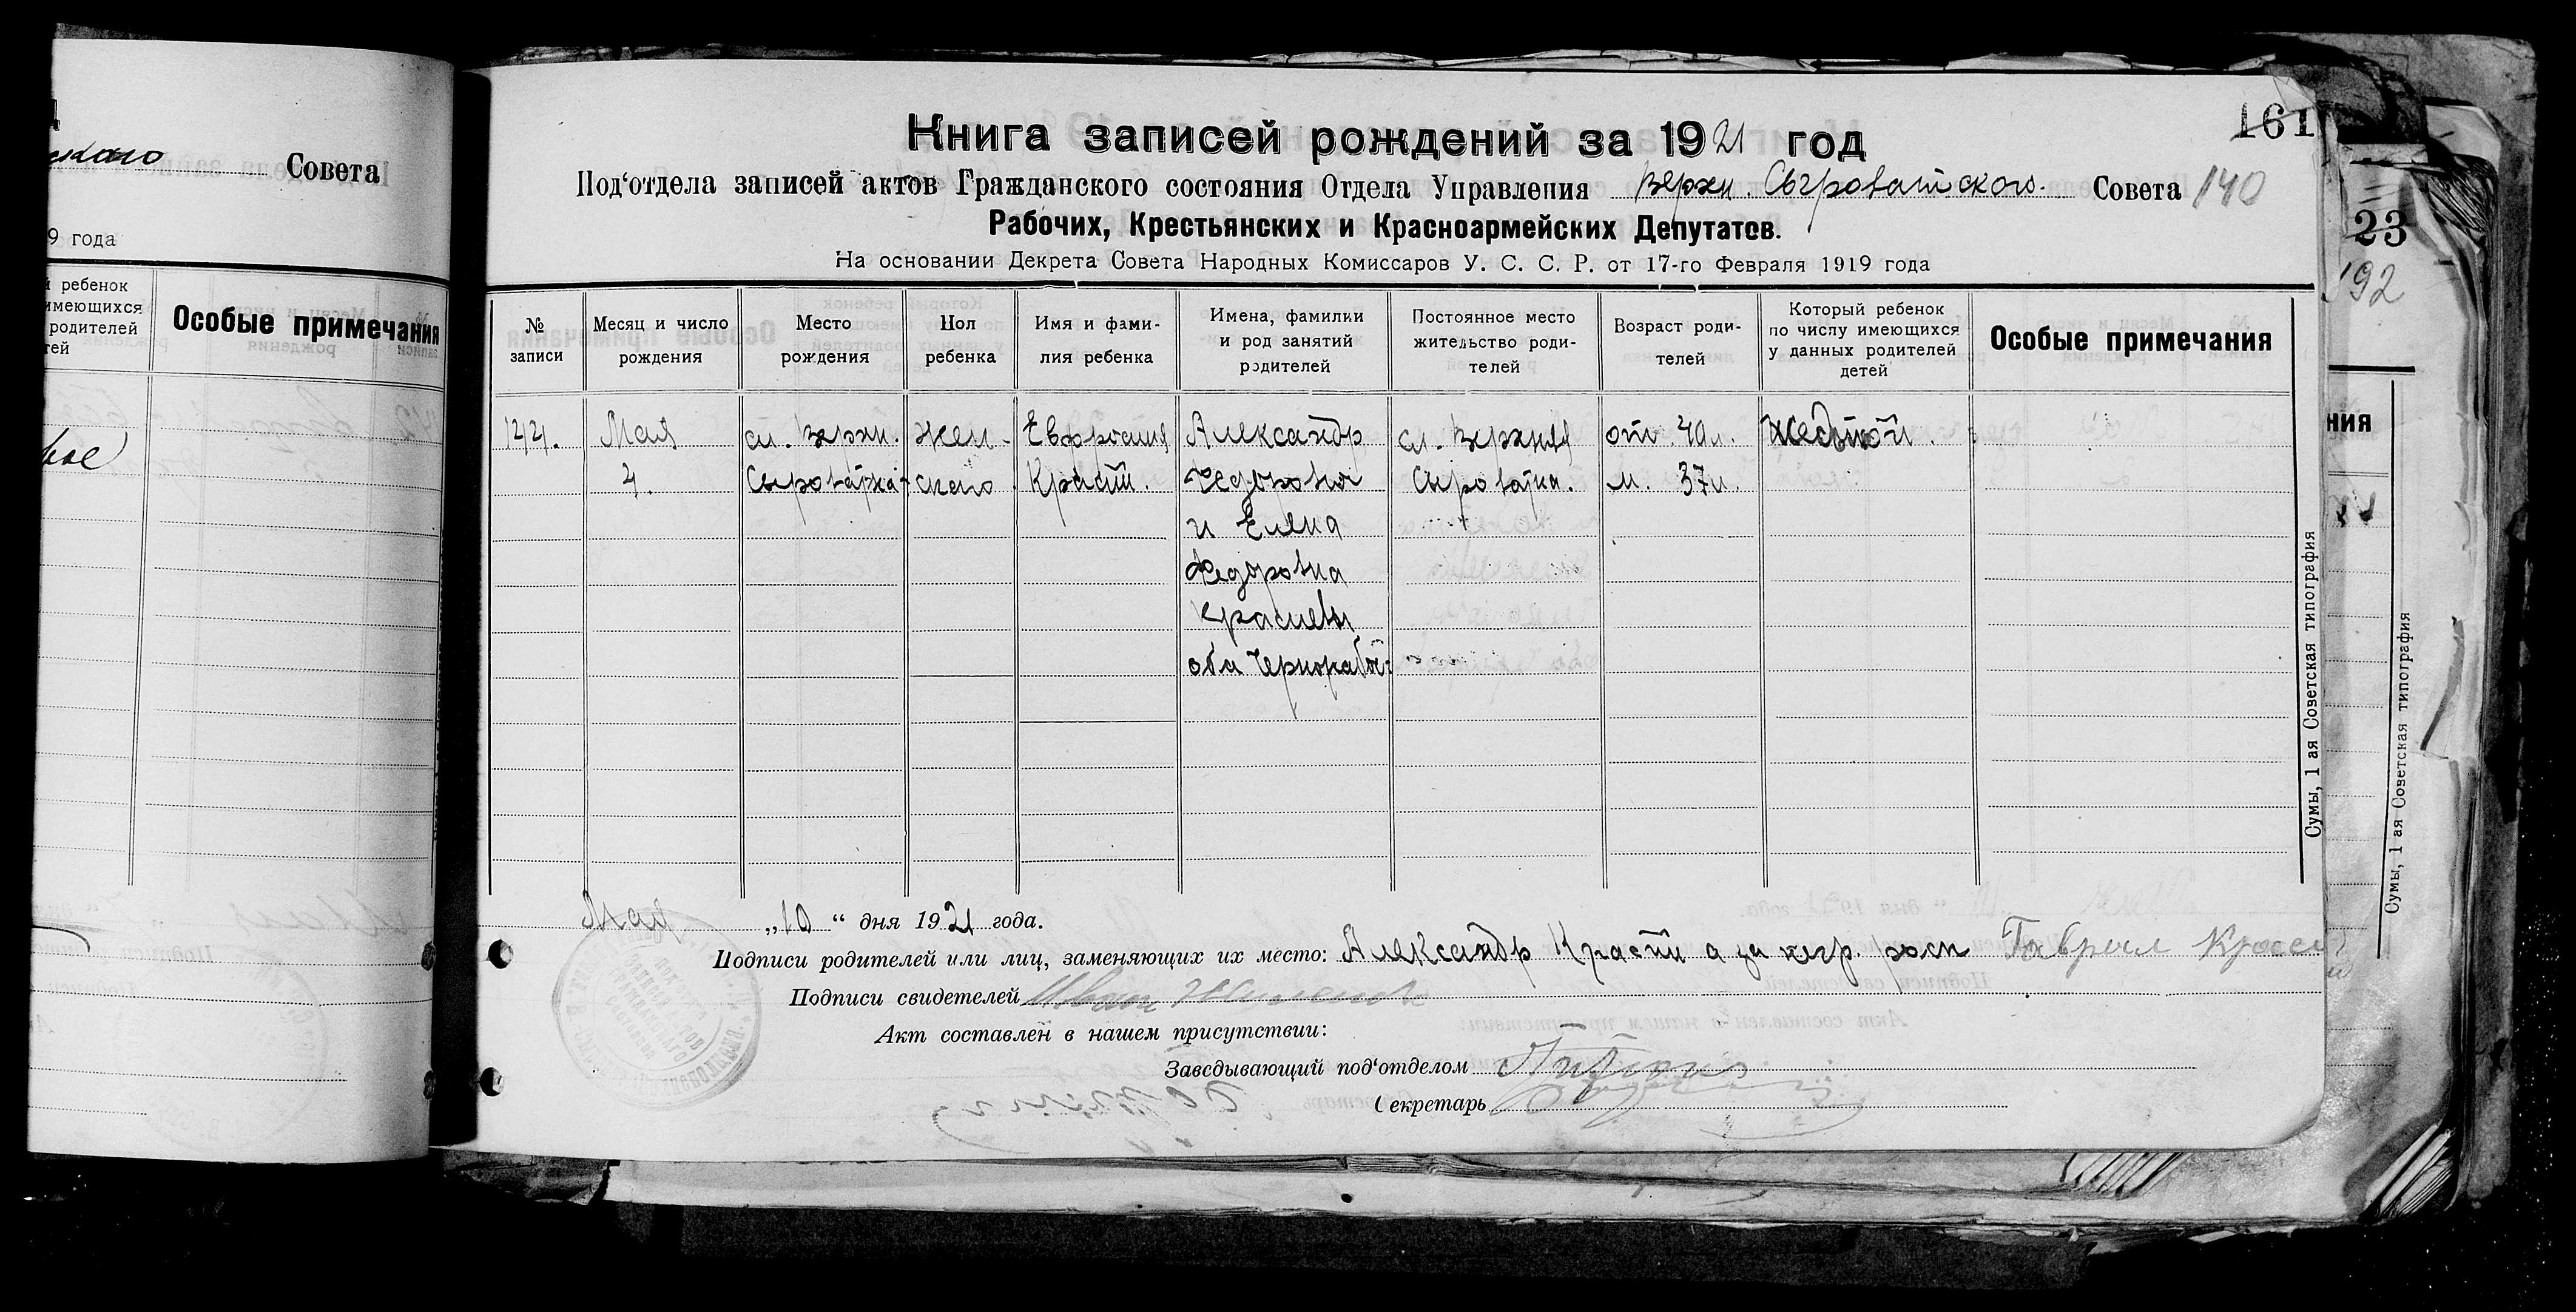 Совета
9 года
й ребенок
имеющихся
родителей
тей
Особые примечания
Книга записей рождений за 1921 год
161
Под‘отдела записей актов Гражданского состояния Отдела Управления Верхн. Сыроватского. Совета 140
Рабочих, Крестьянских и Красноармейских Депутатов.
На основании Декрета Совета Народных Комиссаров У. С. С. Р. от 17-го Февраля 1919 года
№ записи
Месяц и число рождения
Место рождения
Пол ребенка
Имя и фами-
лия ребенка
Имена, фамилии
и род занятий
родителей
Постоянное место
жительство роди-
телей
Возраст роди-
телей
Который ребенок
по числу имеющихся
у данных родителей
детей
Особые примечания
Мая
4.
сл. Верхн.
Сыроватка
жен-
ского
Евфросиния
Александр
Федорович
и Елена
Федоровна
оба Чернорабоч:
сл. Верхняя
Сыроватка.
от. 40 л.
м. 37 л.
Сумы, 1 ая Советская типография
Мая „10“ дня 1921 года.
Подписи родителей или лиц, заменяющих их место: Александр а за негр. росп Гаврил
Подписи свидетелей Иван
Акт составлен в нашем присутствии:
Заведывающий под‘отделом
Секретарь
23
192
ния
Сумы, 1 ая Советская типография